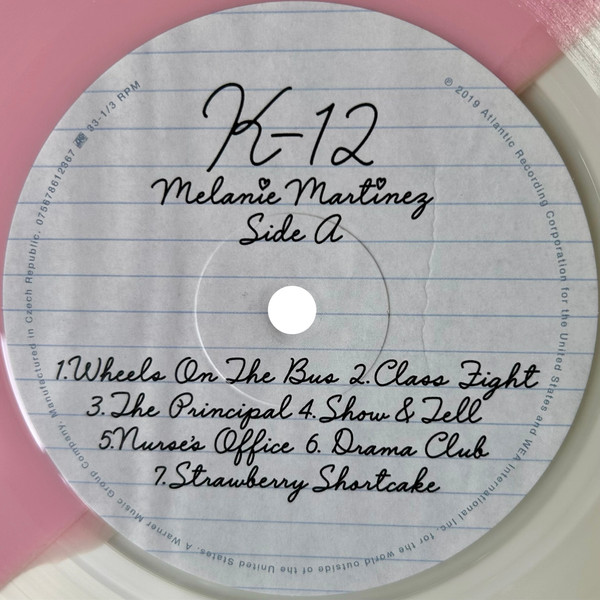 K-12
Melanie Martinez
Side A
1.Wheels On The Bus 2.Class Fight
3.The Principal 4.Show & Tell
5.Nurse's Office 6. Drama Club
7.Strawberry Shortcake
℗ 2019 Atlantic Recording Corporation for the United States and WEA International Inc. for the world outside of the United States. A Warner Music Group Company. Manufactured in Czech Republic. 075678612367 33-1/3 RPM